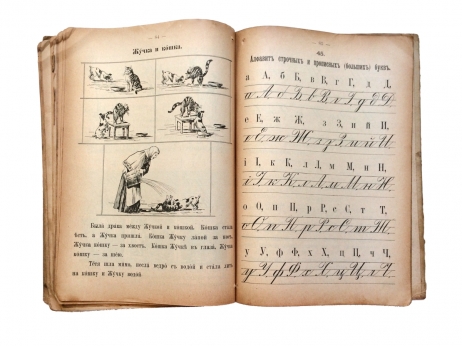 Жу́чка и ко́шка.
Была драка между Жу́чкой и кошкой. Ко́шка стала
ѣсть, а Жу́чка пришла. Кошка Жу́чку лапой за носъ.
Жу́чка ко́шку — за хвостъ. Ко́шка Жу́чкѣ въ глаза. Жу́чка
ко́шку — за шею.
Тётя шла мимо, несла ведро съ водой и стала лить
на ко́шку и Жу́чку водой.
Алфавитъ строчныхъ и прописныхъ (большихъ) буквъ.
а А, б Б, в В, г Г, д Д,
а А б Б в В г Г д Д
е Е, ж Ж, з З, и Й,
е Е ж Ж з З и Й И
і I, к К, л Л, м М, н Н,
і I к К л Л м М н Н
о О, п П, р Р, с С, т Т,
о О п П р Р с С т Т
у У, ф Ф, х Х, ц Ц, ч Ч,
у У ф Ф х Х ц Ц ч Ч